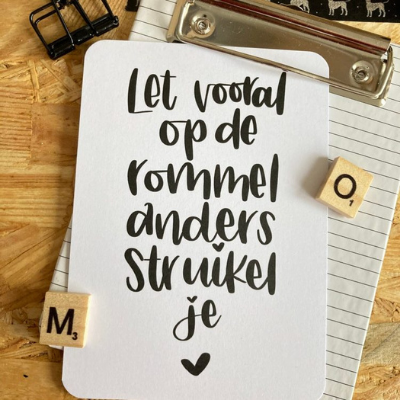 Let vooral
op de
rommel
anders
struikel
je
O1
M3